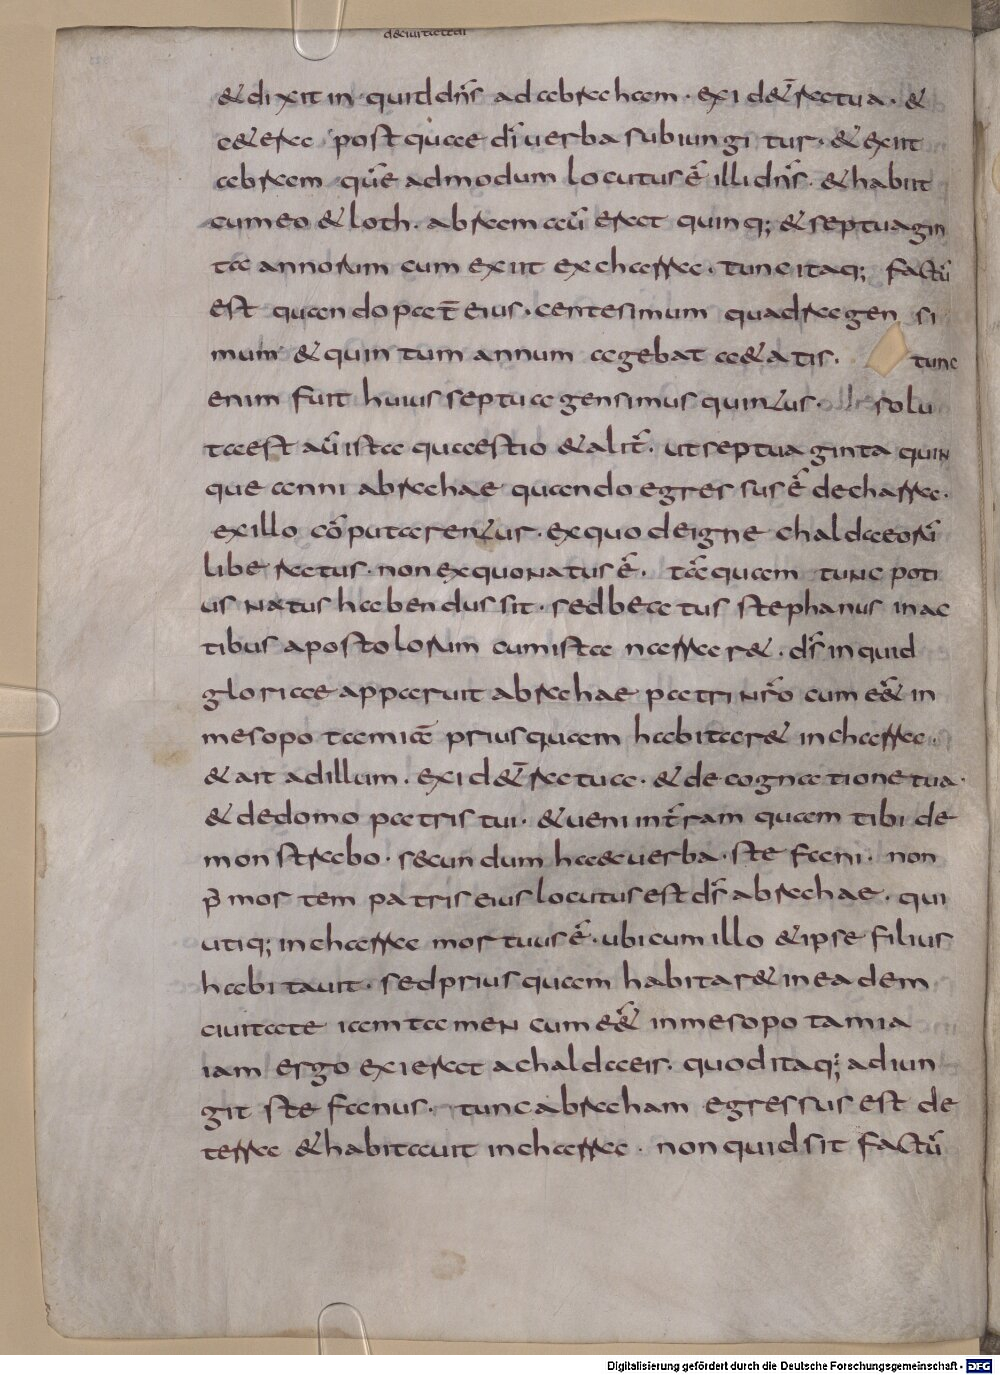 deciuitatedi
& dixit inquid dn̄s ad abraham · exi d& ̄ra tua · &
c&era postquae dī uerba subiungitur · & exiit
abram que ̄admodum locutus ē illi dn̄s · & habiit
cum eo & loth · abram au ̄ erat quinq; & septuagin
ta annorum cum exiit excharra · tunc itaq; factu ̄
est quando pat ̄ eius · centesimum quadragen si
mum & quintum annum agebat aetatis · tunc
enim fuit huius septuagensimus quintus · solu
ta est au ̄ ista quaestio & alit ̄ · ut septuaginta quin
que anni abrahae quando egressus ē de charra ·
ex illo co ̄putarentur · ex quo de igne chaldaeoru ̄
liberatus · non ex quo natus ē · ta ̄quam tunc poti
us natus habendus sit · sed beatus stephanus in ac
tibus apostolorum cum ista narrar& · dī inquid
gloriae apparuit abrahae patri nr ̄o cum e ̄& in
mesopotamia ̄ priusquam habitar& in charra ·
& ait ad illum · exi d& ̄ra tua · & de cognatione tua ·
& de domo patris tui · & ueni in t ̄ram quam tibi de
monstrabo · secundum haec uerba · stefani · non
p ̄ mortem patris eius locutus est dī abrahae · qui
utiq; in charra mortuus ē · ubi cum illo & ipse filius
habitauit · sed priusquam habitar& in eadem
ciuitate iam tamen cum e ̄& in mesopotamia
iam ergo exierat a chaldaeis · quod itaq; adiun
git stefanus · tunc abraham egressus est de
terra & habitauit in charra · non quid sit factu ̄
Digitalisierung gefördert durch die Deutsche Forschungsgemeinschaft - DFG